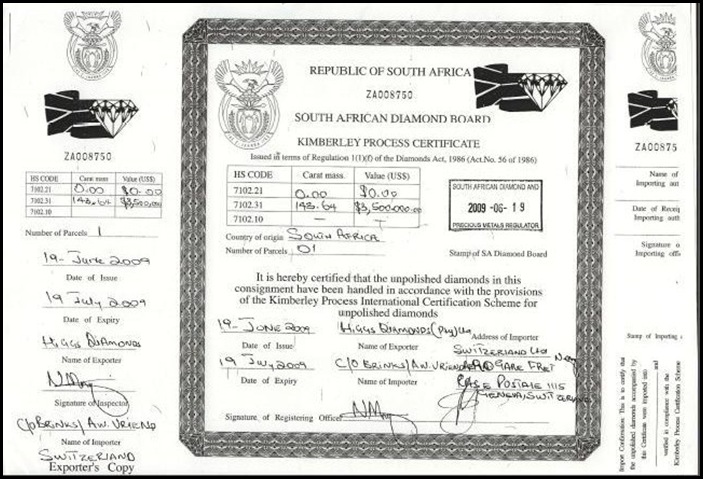 ZA008750
HS CODE Carat mass Value (US$)
7102.21 0.00 $0.00
7102.31 143.64 $3,500,000
7102.10
Number of Parcels 1
19-June 2009
Date of Issue
19 July 2009
Date of Expiry
Higgs Diamonds
Name of Exporter
Signature of Inspector
c/o Brinks/A.W. Vriend
Name of Importer
Switzerland
Exporter's Copy
REPUBLIC OF SOUTH AFRICA
ZA008750
SOUTH AFRICAN DIAMOND BOARD
KIMBERLEY PROCESS CERTIFICATE
Issued in terms of Regulation 1(1)(f) of the Diamonds Act, 1986 (Act.No. 56 of 1986)
HS CODE Carat mass. Value (US$)
7102.21 0.00 $0.00
7102.31 143.64 $3,500,000.00
7102.10 — —
SOUTH AFRICAN DIAMOND AND
2009 -06- 19
PRECIOUS METALS REGULATOR
Country of origin South Africa
Number of Parcels 01
Stamp of SA Diamond Board
It is hereby certified that the unpolished diamonds in this
consignment have been handled in accordance with the provisions
of the Kimberley Process International Certification Scheme for
unpolished diamonds
19-June 2009 Higgs Diamonds (Pty) Ltd
Date of Issue Name of Exporter Address of Importer
Switzerland
19 July 2009 C/O Brinks/A.W. Vriend Gare Fret
Date of Expiry Name of Importer Postale 1115
Geneva, Switzerland
Signature of Registering Officer
ZA00875
Name of
Importing aut
Date of Receip
Importing auth
Signature o
Importing offi
Stamp of Importing
Import Confirmation. This is to certify that
the unpolished diamonds accompanied by
this Certificate were imported into
and
verified in compliance with the
Kimberley Process Certification Scheme